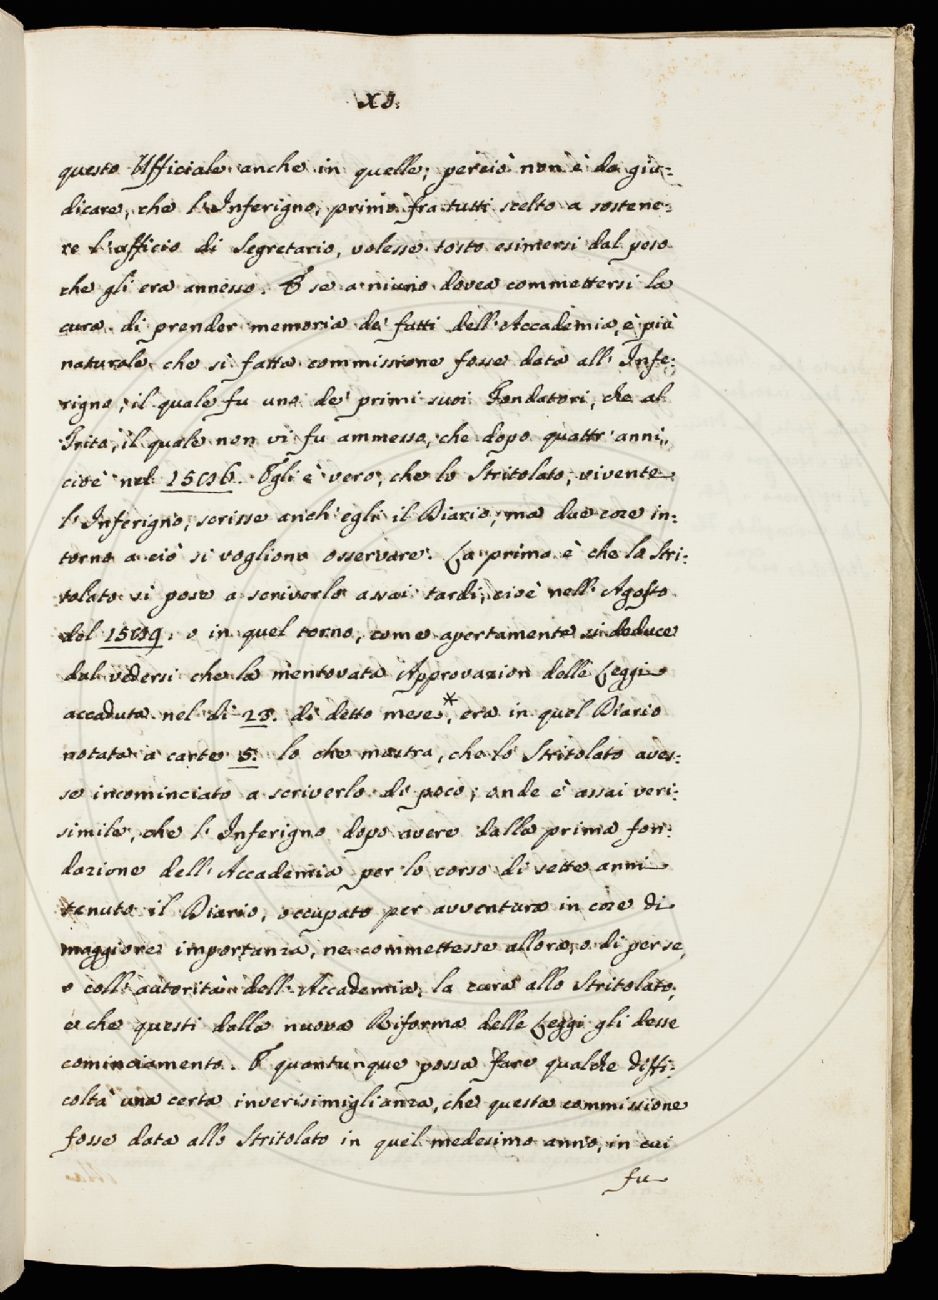 XI.
questo Ufficiale anche in quelle; perciò non è da giu-
dicare, che l'Inferigno, primo fra tutti scelto a sostene-
re l'ufficio di Segretario, volesse tosto esimersi dal peso
che gli era annesso. E se a niuno dovea commettersi la
cura di prender memoria de' fatti dell'Accademia, è più
naturale che sì fatta commissione fosse data all'Infe-
rigno, il quale fu uno de' primi suoi Fondatori, che al
Trito, il quale non vi fu ammesso, che dopo quattr'anni,
cioè nel 1586. Egli è vero, che lo Stritolato, vivente
l'Inferigno, scrisse anch'egli il Diario; ma due cose in-
torno a ciò si vogliono osservare. La prima è che lo Stri-
tolato si pose a scriverlo assai tardi, cioè nell'Agosto
del 1589. o in quel torno, come apertamente si deduce
dal vedersi che la mentovata Approvazion delle Leggi
accaduta nel dì 23. di detto mese*, era in quel Diario
notata a carte 5. lo che mostra, che lo Stritolato aves-
se incominciato a scriverlo di poco; onde è assai veri-
simile, che l'Inferigno dopo avere dalla prima fon-
dazione dell'Accademia per lo corso di sette anni
tenuto il Diario, occupato per avventura in cose di
maggiore importanza, ne commettesse allora, o di per se,
o coll'autorità dell'Accademia, la cura allo Stritolato,
e che questi dalla nuova Riforma delle Leggi gli desse
cominciamento. E quantunque possa fare qualche diffi-
coltà una certa inverisimiglianza, che questa commissione
fosse data allo Stritolato in quel medesimo anno, in cui
fu